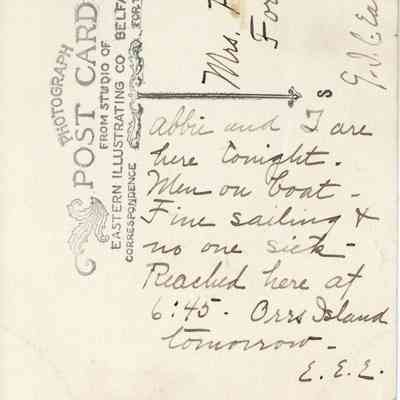 PHOTOGRAPH
POST CARD
FROM STUDIO OF
EASTERN ILLUSTRATING CO BELFA
CORRESPONDENCE
FOR
Mrs.
For
S
Abbie and I are
here tonight.
Men on boat -
Fine sailing &
no one sick -
Reached here at
6:45. Orrs Island
tomorrow -
E. E. E.